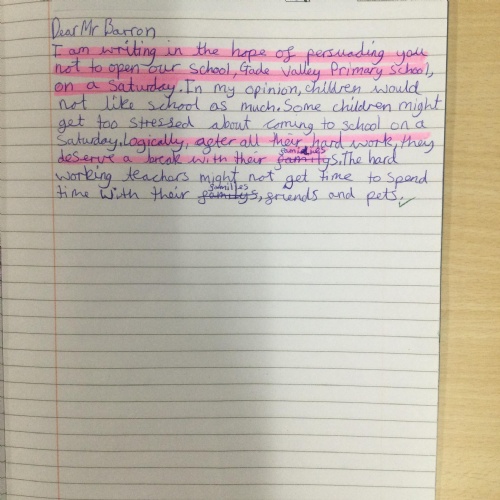 Dear Mr Barron
I am writing in the hope of persuading you
not to open our school, Gade Valley Primary School,
on a Saturday. In my opinion, children would
not like school as much. Some children might
get too stressed about coming to school on a
Saturday. Logically, after all their hard work, they
deserve a break with their familys families. The hard
working teachers might not get time to spend
time with their familys families, friends and pets.